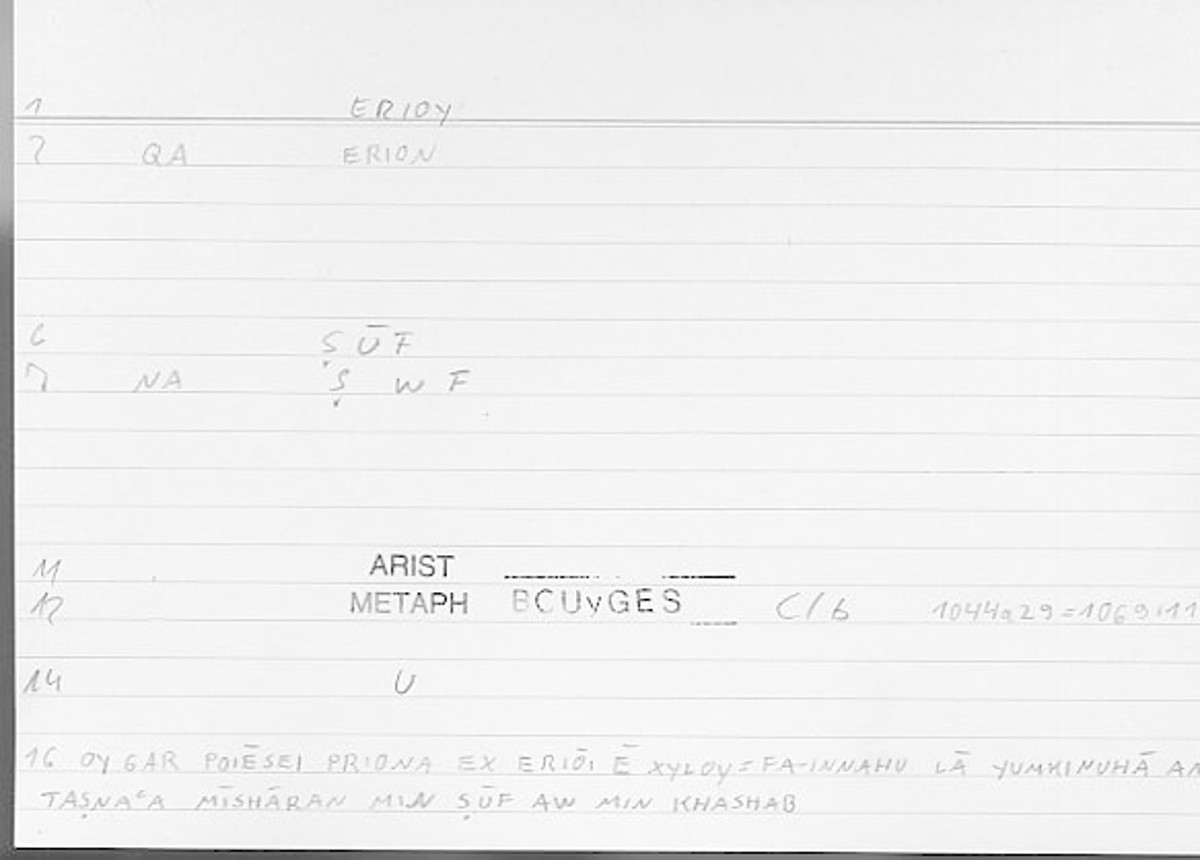 1 ERIOY
2 QA ERION
6 ṢŪF
7 NA Ṣ W F
11 ARIST
12 METAPH BCUvGES C/6 1044a29=1069:11
14 U
16 OY GAR POIĒSEI PRIONA EX ERIŌI Ē XYLOY = FA-INNAHU LĀ YUMKINUHĀ AN
TAṢNAʿA MĪSHĀRAN MIN ṢŪF AW MIN KHASHAB